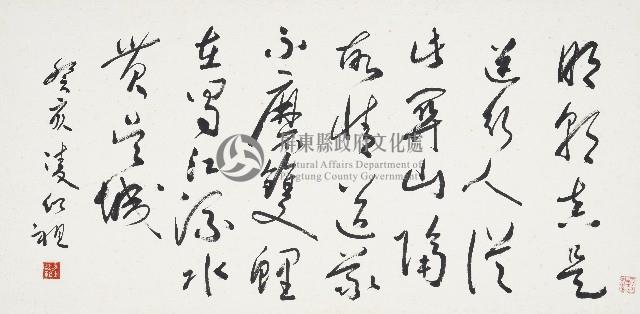 明朝真是
送行人從
此關山隔
故情道義
不磨雙鯉
在蜀江流水
貫吳城
癸亥 凌紹祖
屏東縣政府文化處
Cultural Affairs Department of
Pingtung County Government